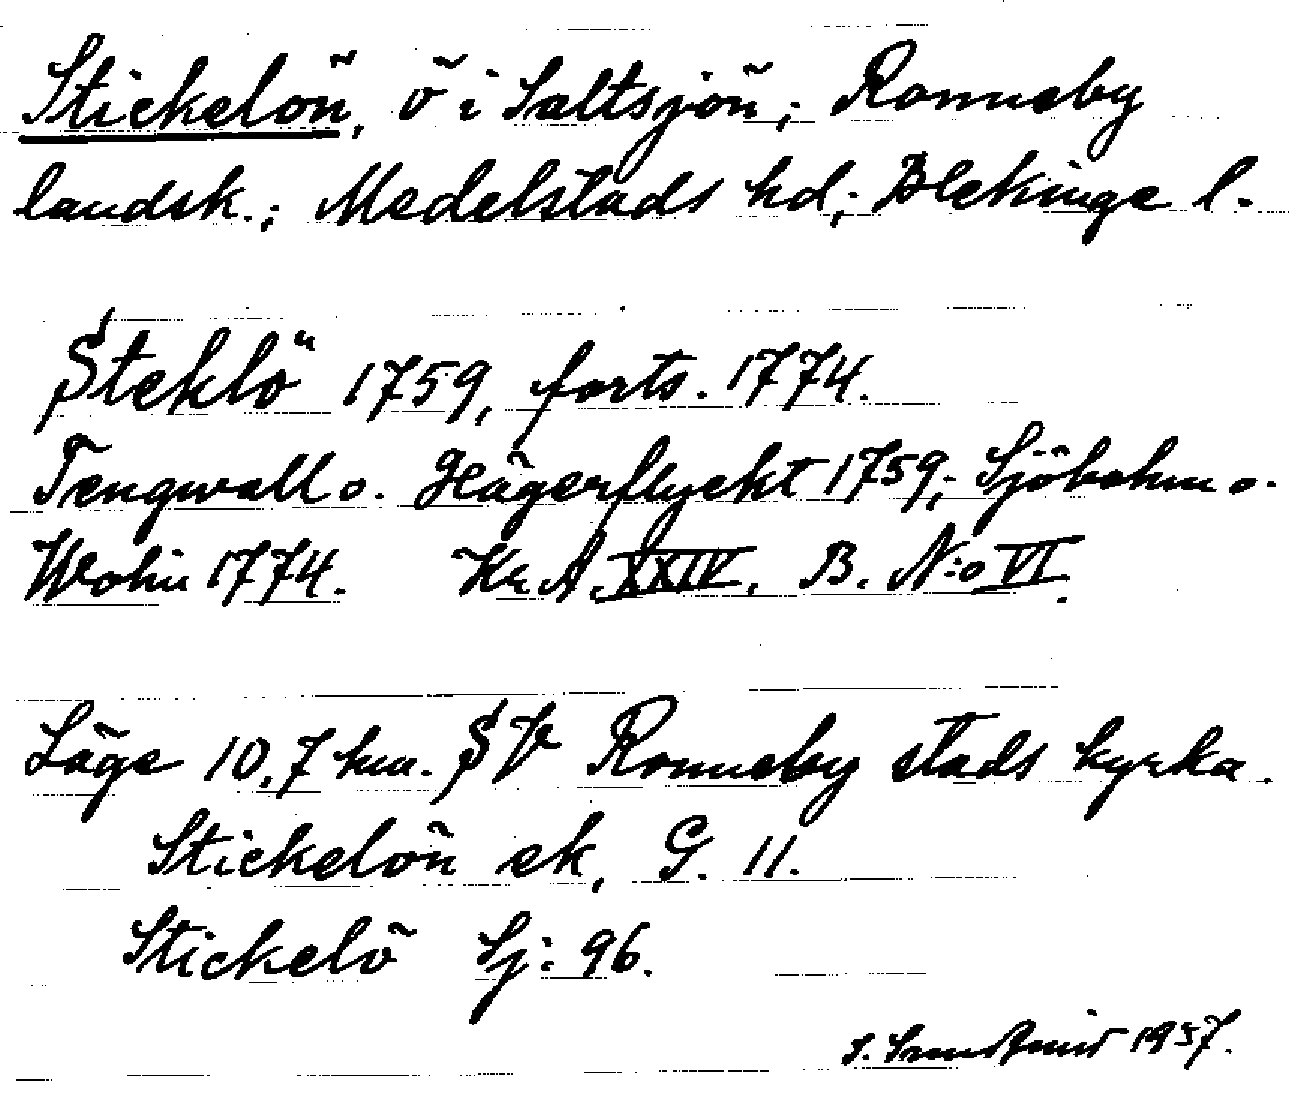 Stickelön, ö i Saltsjön; Ronneby
landsk.; Medelstads hd; Blekinge l.
Steklö 1759, forts. 1774.
Tengwall o. Hägerflyckt 1759; Sjöbohm o.
Wohn 1774. Kr. A. XXIV. B. N:o VI.
Läge 10,7 km. SV Ronneby stads kyrka.
Stickelön ek, G. 11.
Stickelö Sj: 96.
1937.